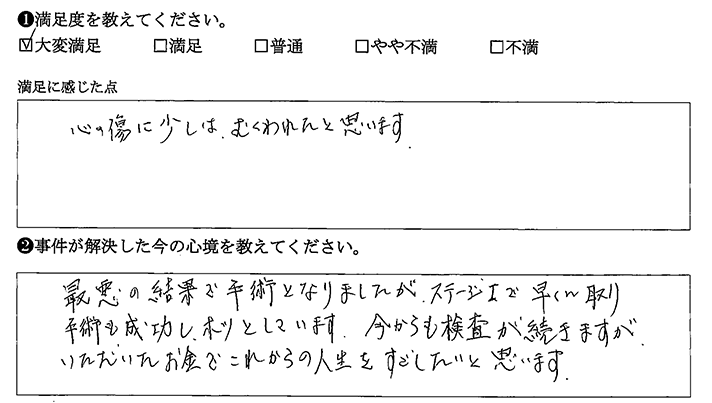 ❶満足度を教えてください。
☑大変満足 □満足 □普通 □やや不満 □不満
満足に感じた点
心の傷に少しは、むくわれたと思います。
❷事件が解決した今の心境を教えてください。
最悪の結果で手術となりましたが、ステージⅠで早くに取り
手術も成功し、ホッとしています。今からも検査が続きますが、
いただいたお金でこれからの人生をすごしたいと思います。